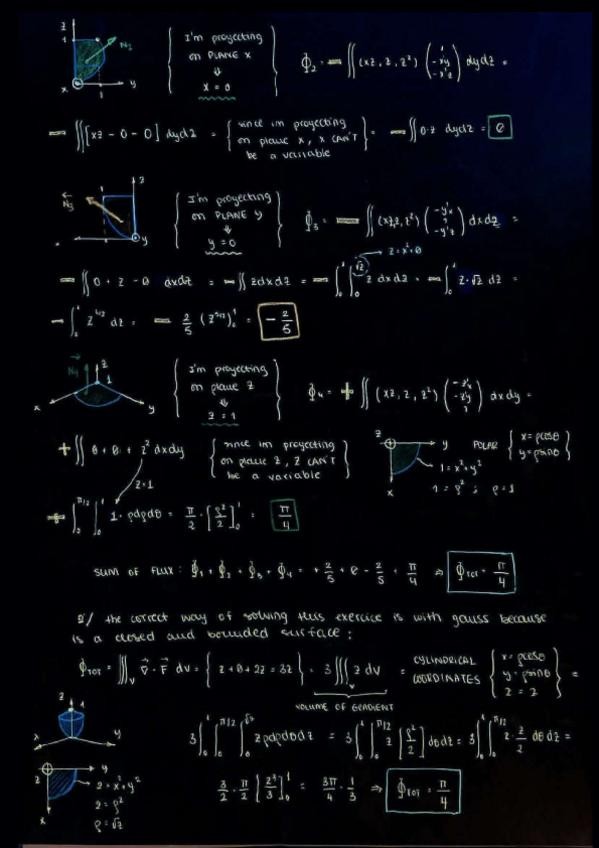 z
1
N₂
x
y
1
I'm proyecting
on PLANE x
⇓
x = 0
Φ₂ = − ∬ (xz, z, z²) (1, −x'y, −x'z) dydz =
− ∬ [xz − 0 − 0] dydz = { since im proyecting
on plane x, x CAN'T
be a variable } = − ∬ 0·z dydz = 0
z
N₃
x
y
I'm proyecting
on PLANE y
⇓
y = 0
Φ₃ = − ∬ (xz, z, z²) (−y'x, 1, −y'z) dxdz =
z = x² + 0
− ∬ 0 + z − 0 dxdz = − ∬ z dxdz = − ∫₀¹ ∫₀^√z z dxdz = − ∫₀¹ z·√z dz =
− ∫₀¹ z^3/2 dz = − 2/5 (z^5/2)₀¹ = − 2/5
N₄
z
1
x
y
I'm proyecting
on plane z
⇓
z = 1
Φ₄ = + ∬ (xz, z, z²) (−z'x, −z'y, 1) dxdy =
+ ∬ 0 + 0 + z² dxdy { since im proyecting
on plane z, z CAN'T
be a variable }
z = 1
z
y
x
1 = x² + y²
1 = ρ² ; ρ = 1
POLAR { x = ρcosθ
y = ρsinθ }
+ ∫₀^π/2 ∫₀¹ 1 · ρdρdθ = π/2 · [ρ²/2]₀¹ = π/4
SUM OF FLUX: Φ₁ + Φ₂ + Φ₃ + Φ₄ = + 2/5 + 0 − 2/5 + π/4 ⇒ Φtot = π/4
2/ the correct way of solving this exercise is with gauss because
is a closed and bounded surface:
Φtot = ∭v ∇·F dv = { z + 0 + 2z = 3z } = 3 ∭v z dv = CYLINDRICAL
COORDINATES { x = ρcosθ
y = ρsinθ
z = z } =
VOLUME OF GRADIENT
z
1
x
y
3 ∫₀¹ ∫₀^π/2 ∫₀^√z zρdρdθdz = 3 ∫₀¹ ∫₀^π/2 z [ρ²/2] dθdz = 3 ∫₀¹ ∫₀^π/2 z · z/2 dθ dz =
z
y
x
z = x² + y²
z = ρ²
ρ = √z
3/2 · π/2 [z³/3]₀¹ = 3π/4 · 1/3 ⇒ Φtot = π/4